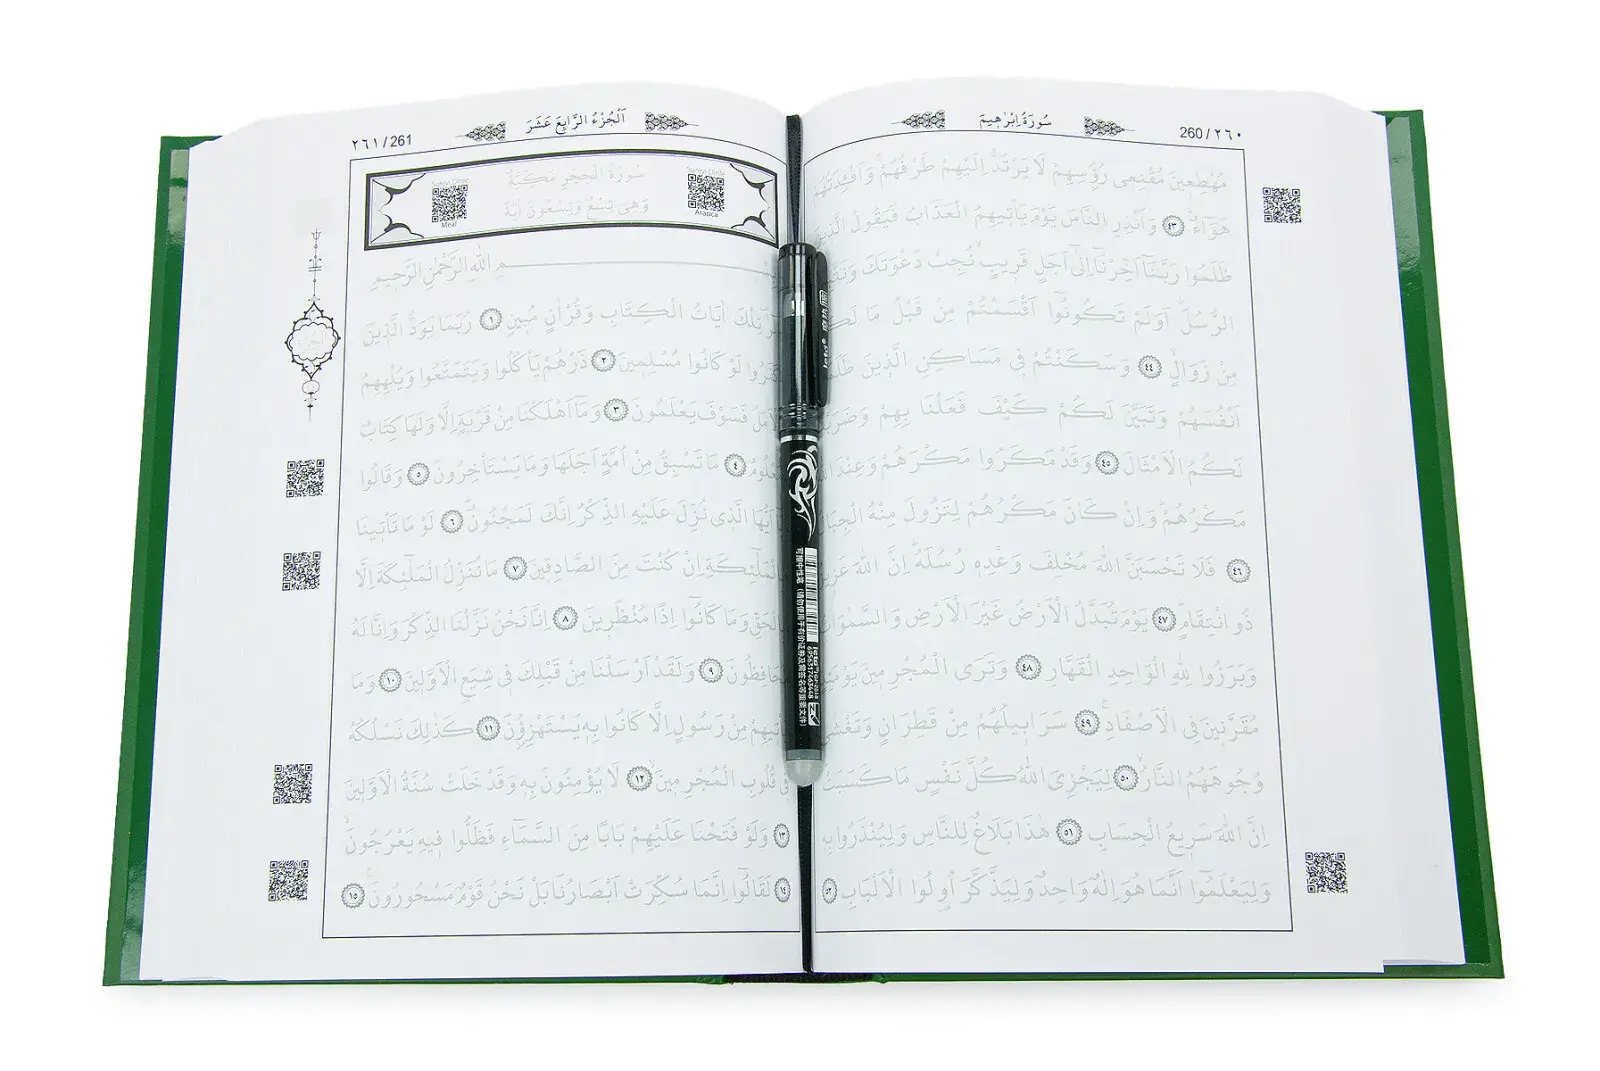 سُورَةُ اِبْرٰهِيمَ
260 / ٢٦٠
مُهْطِعِينَ مُقْنِعِى رُؤُسِهِمْ لَا يَرْتَدُّ اِلَيْهِمْ طَرْفُهُمْ وَاَفْـِٔدَتُهُمْ
هَوَٓاءٌ ٤٣ وَاَنْذِرِ النَّاسَ يَوْمَ يَأْتِيهِمُ الْعَذَابُ فَيَقُولُ الَّذِينَ
ظَلَمُوا رَبَّنَٓا اَخِّرْنَٓا اِلٰٓى اَجَلٍ قَرِيبٍ نُجِبْ دَعْوَتَكَ
الرُّسُلَ اَوَلَمْ تَكُونُٓوا اَقْسَمْتُمْ مِنْ قَبْلُ مَا
مِنْ زَوَالٍ ٤٤ وَسَكَنْتُمْ فِى مَسَاكِنِ الَّذِينَ
اَنْفُسَهُمْ وَتَبَيَّنَ لَكُمْ كَيْفَ فَعَلْنَا بِهِمْ
لَكُمُ الْاَمْثَالَ ٤٥ وَقَدْ مَكَرُوا مَكْرَهُمْ
مَكْرُهُمْ وَاِنْ كَانَ مَكْرُهُمْ لِتَزُولَ مِنْهُ
٤٦ فَلَا تَحْسَبَنَّ اللّٰهَ مُخْلِفَ وَعْدِهِ رُسُلَهُ اِنَّ اللّٰهَ
ذُو انْتِقَامٍ ٤٧ يَوْمَ تُبَدَّلُ الْاَرْضُ غَيْرَ الْاَرْضِ
وَبَرَزُوا لِلّٰهِ الْوَاحِدِ الْقَهَّارِ ٤٨ وَتَرَى الْمُجْرِمِينَ
مُقَرَّنِينَ فِى الْاَصْفَادِ ٤٩ سَرَابِيلُهُمْ مِنْ قَطِرَانٍ
وُجُوهَهُمُ النَّارُ ٥٠ لِيَجْزِىَ اللّٰهُ كُلَّ نَفْسٍ مَا كَسَبَتْ
اِنَّ اللّٰهَ سَرِيعُ الْحِسَابِ ٥١ هٰذَا بَلَاغٌ لِلنَّاسِ وَلِيُنْذَرُوا بِهِ
وَلِيَعْلَمُٓوا اَنَّمَا هُوَ اِلٰهٌ وَاحِدٌ وَلِيَذَّكَّرَ اُولُوا الْاَلْبَابِ ٥٢
اَلْجُزْءُ الرَّابِعَ عَشَرَ
٢٦١ / 261
Arapca
سُورَةُ الْحِجْرِ مَكِّيَّةٌ
وَهِىَ تِسْعٌ وَتِسْعُونَ اٰيَةً
Meal
اللّٰهِ الرَّحْمٰنِ الرَّحِيمِ
تِلْكَ اٰيَاتُ الْكِتَابِ وَقُرْاٰنٍ مُبِينٍ ١ رُبَمَا يَوَدُّ الَّذِينَ
لَوْ كَانُوا مُسْلِمِينَ ٢ ذَرْهُمْ يَأْكُلُوا وَيَتَمَتَّعُوا وَيُلْهِهِمُ
فَسَوْفَ يَعْلَمُونَ ٣ وَمَٓا اَهْلَكْنَا مِنْ قَرْيَةٍ اِلَّا وَلَهَا كِتَابٌ
٤ مَا تَسْبِقُ مِنْ اُمَّةٍ اَجَلَهَا وَمَا يَسْتَأْخِرُونَ ٥ وَقَالُوا
الَّذِى نُزِّلَ عَلَيْهِ الذِّكْرُ اِنَّكَ لَمَجْنُونٌ ٦ لَوْ مَا تَأْتِينَا
اِنْ كُنْتَ مِنَ الصَّادِقِينَ ٧ مَا نُنَزِّلُ الْمَلٰٓئِكَةَ اِلَّا
وَمَا كَانُٓوا اِذًا مُنْظَرِينَ ٨ اِنَّا نَحْنُ نَزَّلْنَا الذِّكْرَ وَاِنَّا لَهُ
٩ وَلَقَدْ اَرْسَلْنَا مِنْ قَبْلِكَ فِى شِيَعِ الْاَوَّلِينَ ١٠ وَمَا
مِنْ رَسُولٍ اِلَّا كَانُوا بِهِ يَسْتَهْزِؤُنَ ١١ كَذٰلِكَ نَسْلُكُهُ
فِى قُلُوبِ الْمُجْرِمِينَ ١٢ لَا يُؤْمِنُونَ بِهِ وَقَدْ خَلَتْ سُنَّةُ الْاَوَّلِينَ
١٣ وَلَوْ فَتَحْنَا عَلَيْهِمْ بَابًا مِنَ السَّمَٓاءِ فَظَلُّوا فِيهِ يَعْرُجُونَ
١٤ لَقَالُٓوا اِنَّمَا سُكِّرَتْ اَبْصَارُنَا بَلْ نَحْنُ قَوْمٌ مَسْحُورُونَ ١٥